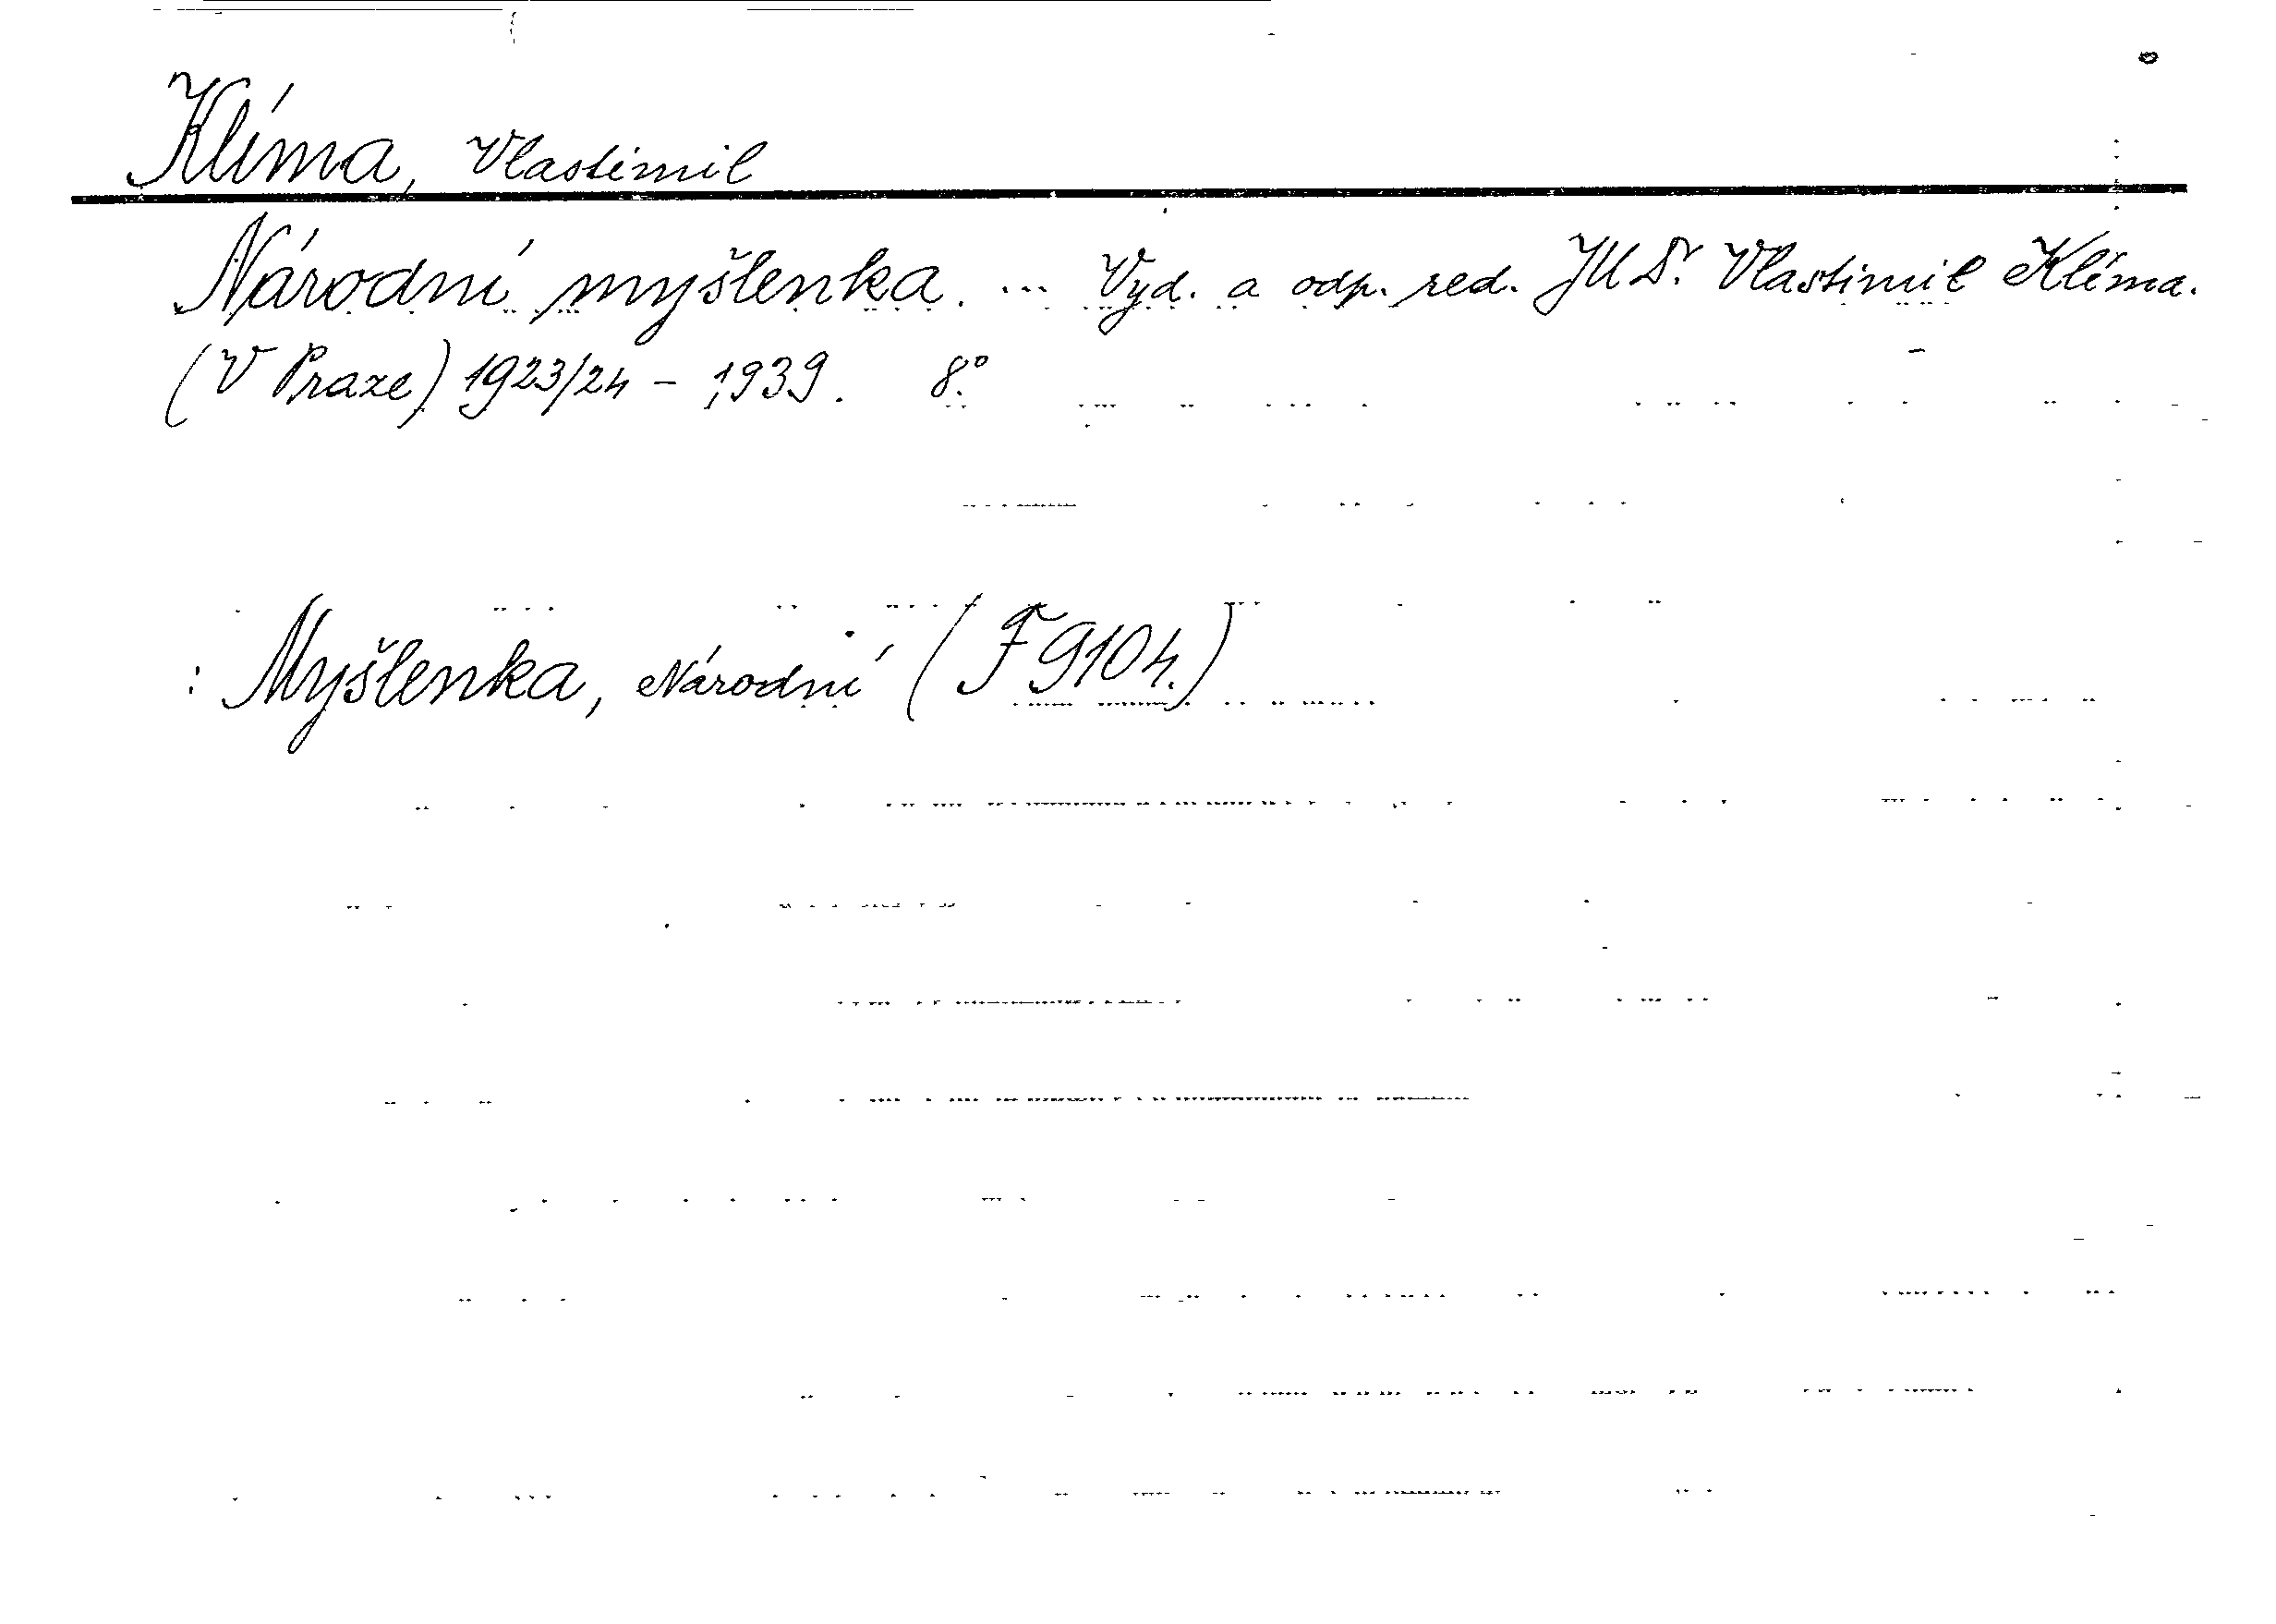 Klíma, Vlastimil
Národní myšlenka. ... Vyd. a odp. red. JUDr. Vlastimil Klíma.
(V Praze) 1923/24 - 1939. 8°.
: Myšlenka, Národní (F 9104.)